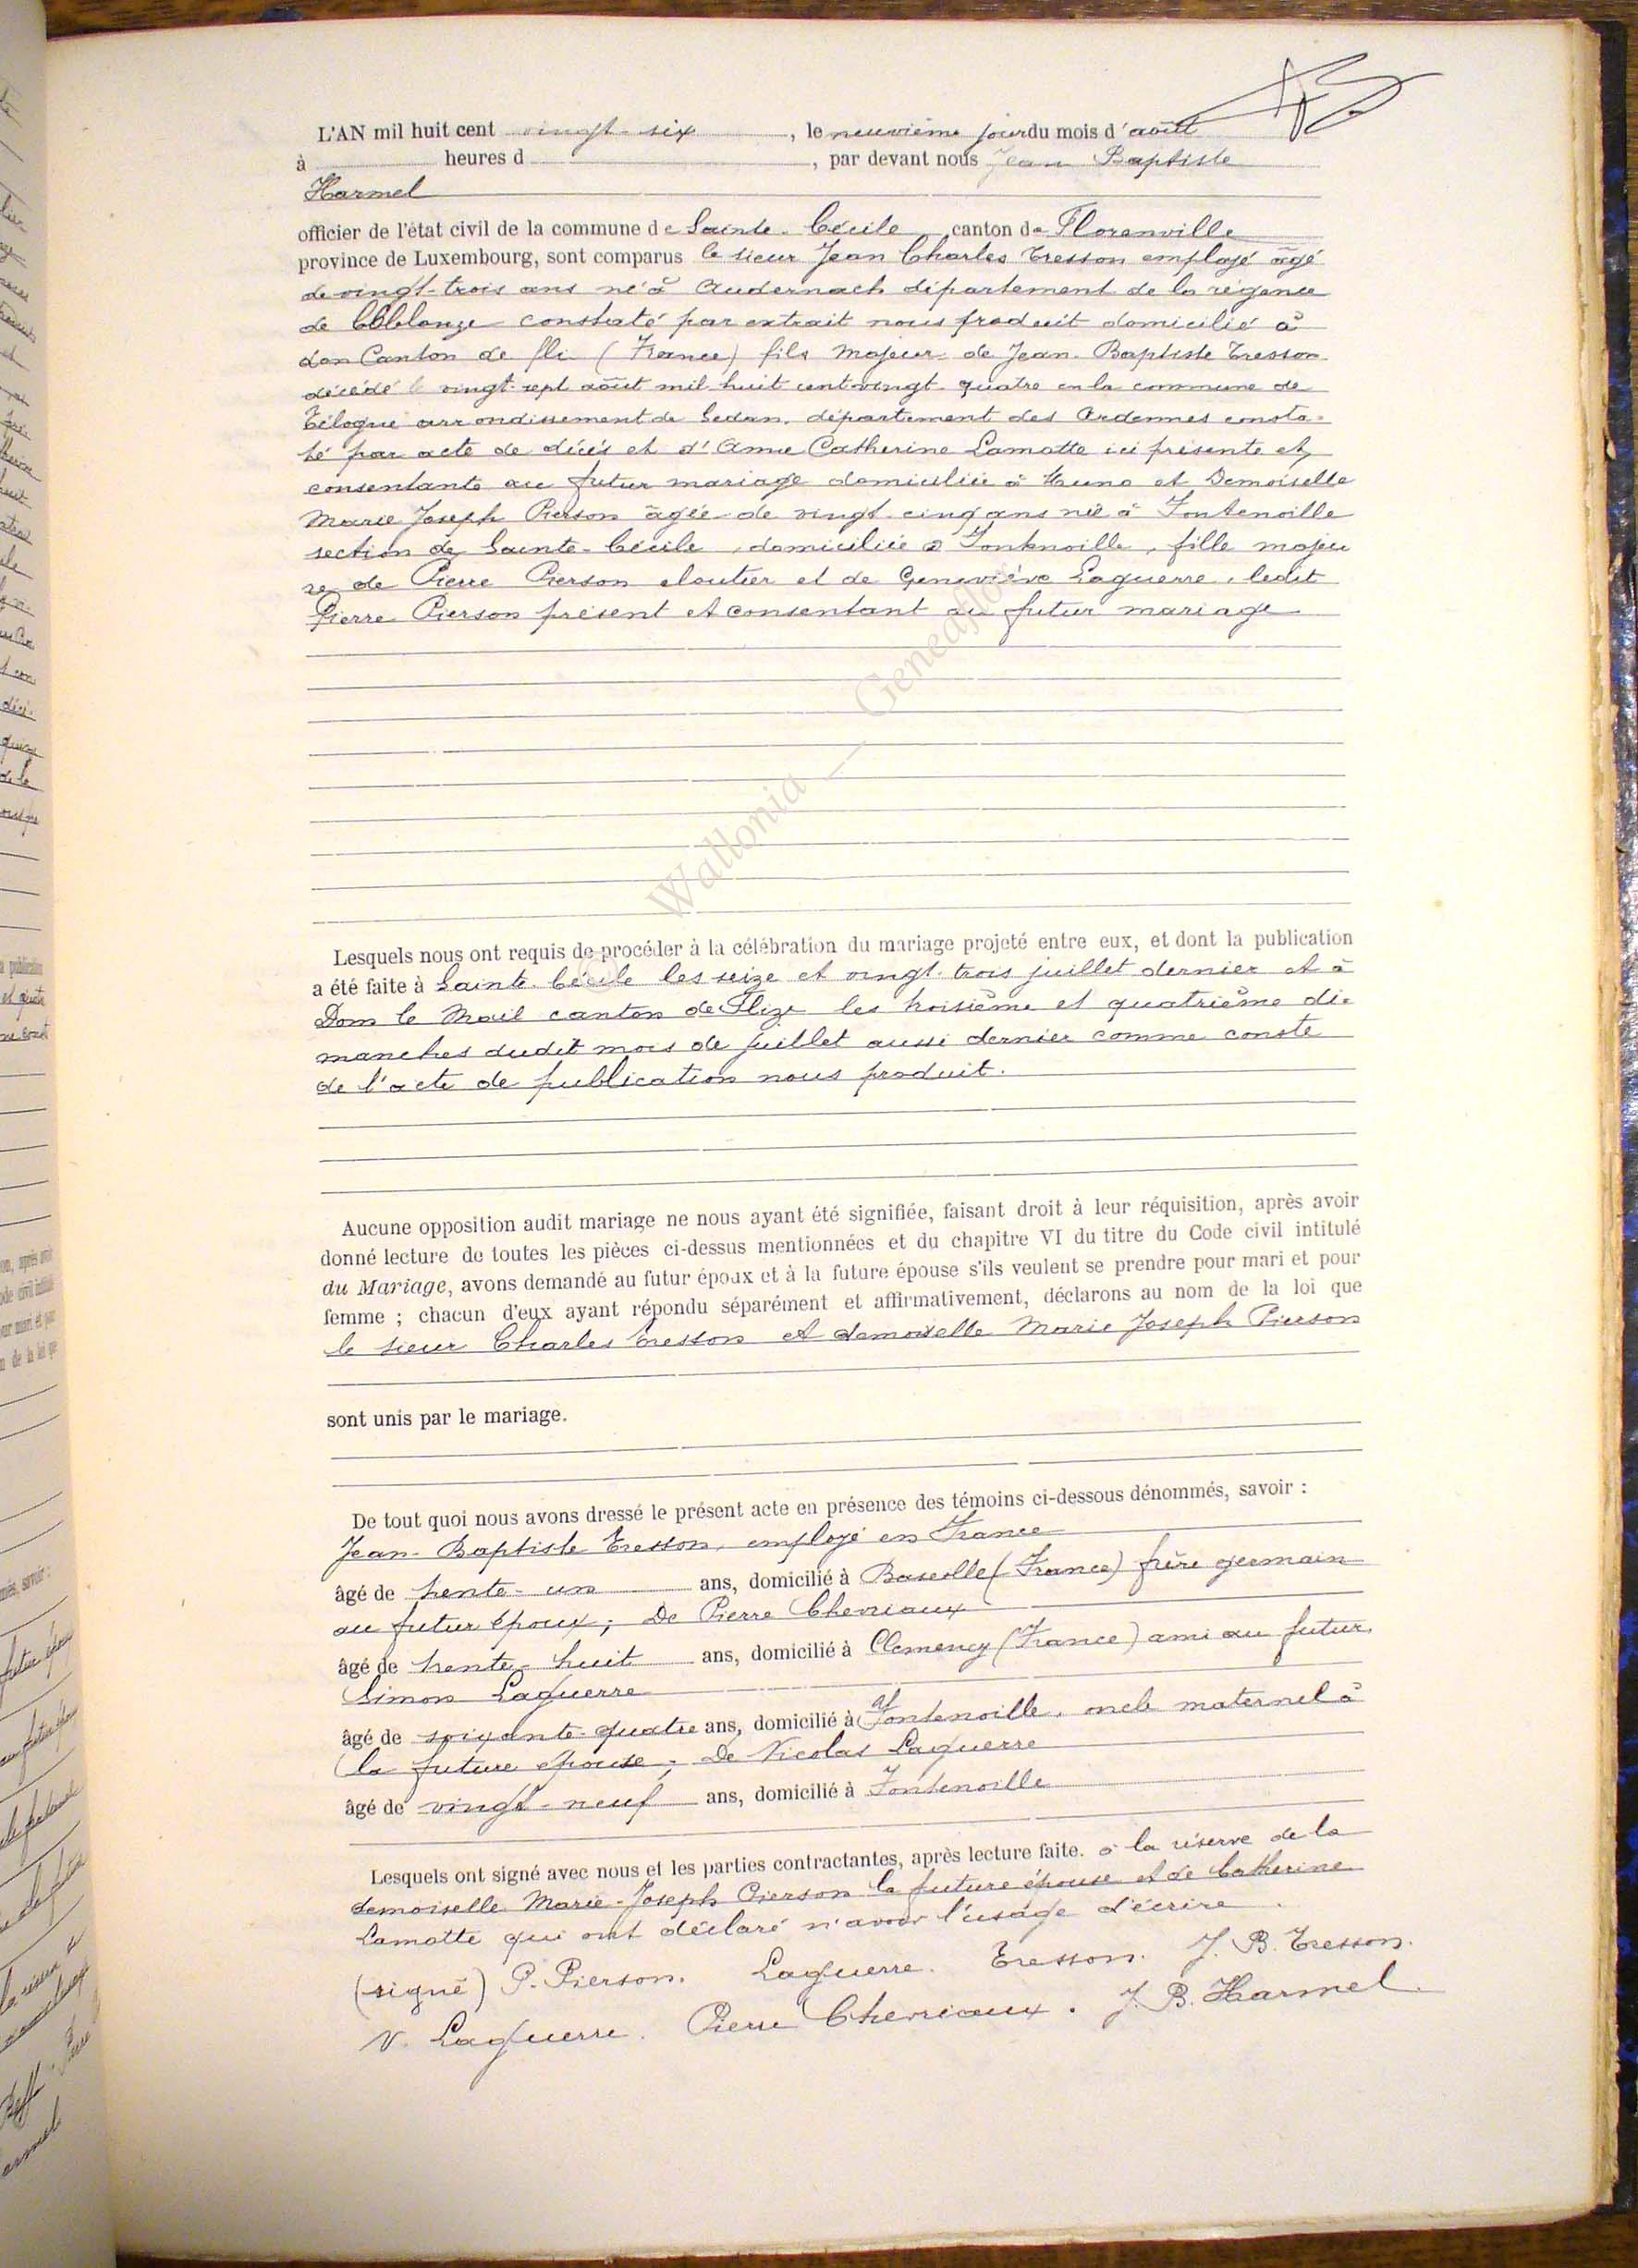 L'AN mil huit cent vingt-six, le neuvième jour du mois d'août
à heures d , par devant nous Jean Baptiste
Harmel
officier de l'état civil de la commune de Sainte-Cécile, canton de Florenville
province de Luxembourg, sont comparus le sieur Jean Charles Tresson employé âgé
de vingt-trois ans né à Andernach département de la régence
de constaté par extrait nous produit domicilié à
don Canton de fli (France) fils majeur de Jean-Baptiste Tresson
décédé le vingt-sept août mil huit cent vingt-quatre en la commune de
arrondissement de Sedan, département des Ardennes consta-
té par acte de décès et d'Anne Catherine Lamotte ici présente et
consentante au futur mariage domiciliée à Muno et Demoiselle
Marie Joseph Pierson âgée de vingt-cinq ans née à Fontenoille
section de Sainte-Cécile, domiciliée à Fontenoille, fille majeu
re de Pierre Pierson cloutier et de Geneviève Laguerre, ledit
Pierre Pierson présent et consentant au futur mariage
Wallonia — Geneaflor
Lesquels nous ont requis de procéder à la célébration du mariage projeté entre eux, et dont la publication
a été faite à Sainte-Cécile les seize et vingt-trois juillet dernier et à
Dom le Mail canton de Flize les troisième et quatrième di-
manches dudit mois de juillet aussi dernier comme conste
de l'acte de publication nous produit.
Aucune opposition audit mariage ne nous ayant été signifiée, faisant droit à leur réquisition, après avoir
donné lecture de toutes les pièces ci-dessus mentionnées et du chapitre VI du titre du Code civil intitulé
du Mariage, avons demandé au futur époux et à la future épouse s'ils veulent se prendre pour mari et pour
femme ; chacun d'eux ayant répondu séparément et affirmativement, déclarons au nom de la loi que
le sieur Charles Tresson et demoiselle Marie Joseph Pierson
sont unis par le mariage.
De tout quoi nous avons dressé le présent acte en présence des témoins ci-dessous dénommés, savoir :
Jean-Baptiste Tresson, employé en France
âgé de trente-un ans, domicilié à (France) frère germain
au futur époux ; De Pierre Chevriaux
âgé de trente-huit ans, domicilié à Clemency (France) ami au futur.
Simon Laguerre
âgé de soixante-quatre ans, domicilié à Fontenoille, oncle maternel à
la future épouse ; De Nicolas Laguerre
âgé de vingt-neuf ans, domicilié à Fontenoille
Lesquels ont signé avec nous et les parties contractantes, après lecture faite. à la réserve de la
demoiselle Marie-Joseph Pierson la future épouse et de Catherine
Lamotte qui ont déclaré n'avoir l'usage d'écrire.
(signé) P. Pierson. Laguerre. Tresson. J. B. Tresson.
N. Laguerre. Pierre Chevriaux. J. B. Harmel.